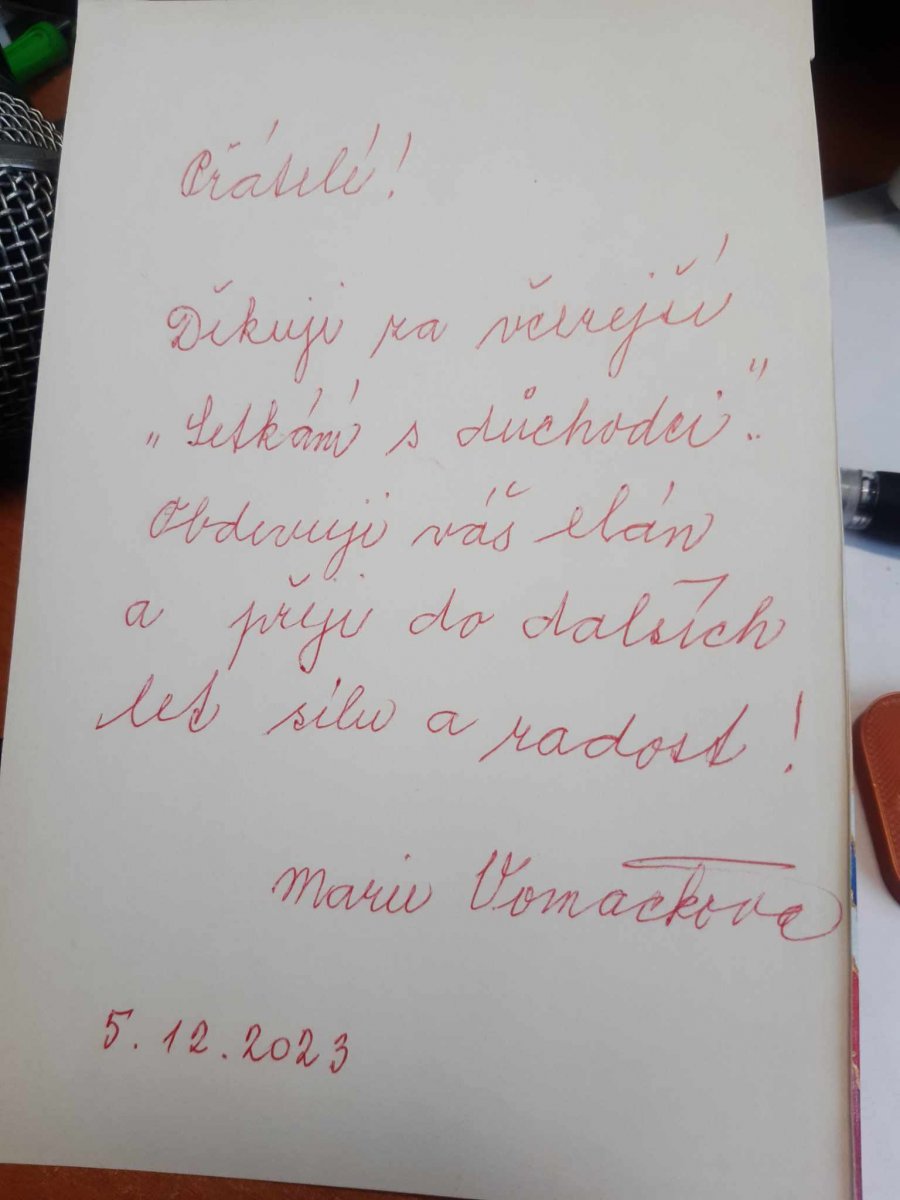 Přátelé!
Děkuji za včerejší
„Setkání s důchodci".
Obdivuji váš elán
a přeji do dalších
let sílu a radost!
Marie Vomáčková
5.12.2023